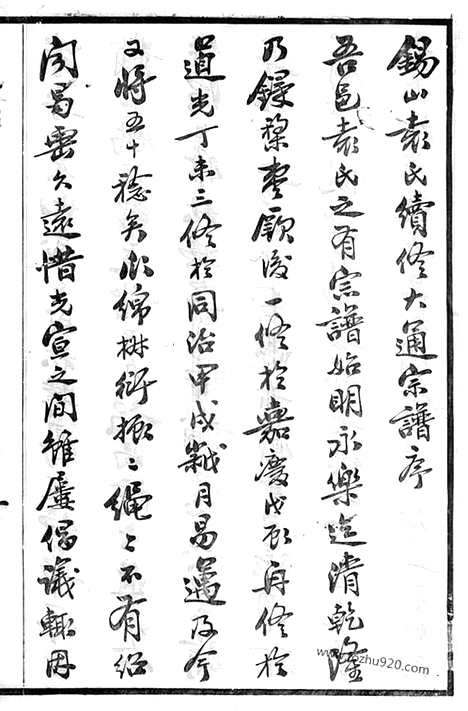 錫山袁氏續修大通宗譜序
吾邑袁氏之有宗譜始明永樂迄清乾隆
乃鋟棃棗厥後一修於嘉慶戊辰再修於
道光丁未三修於同治甲戌歲月易邁及今
又將五十稔矣瓜綿椒衍振〻繩〻不有紹
閒曷垂久遠惜光宣之間雖屢倡議輒因
zhu920.com